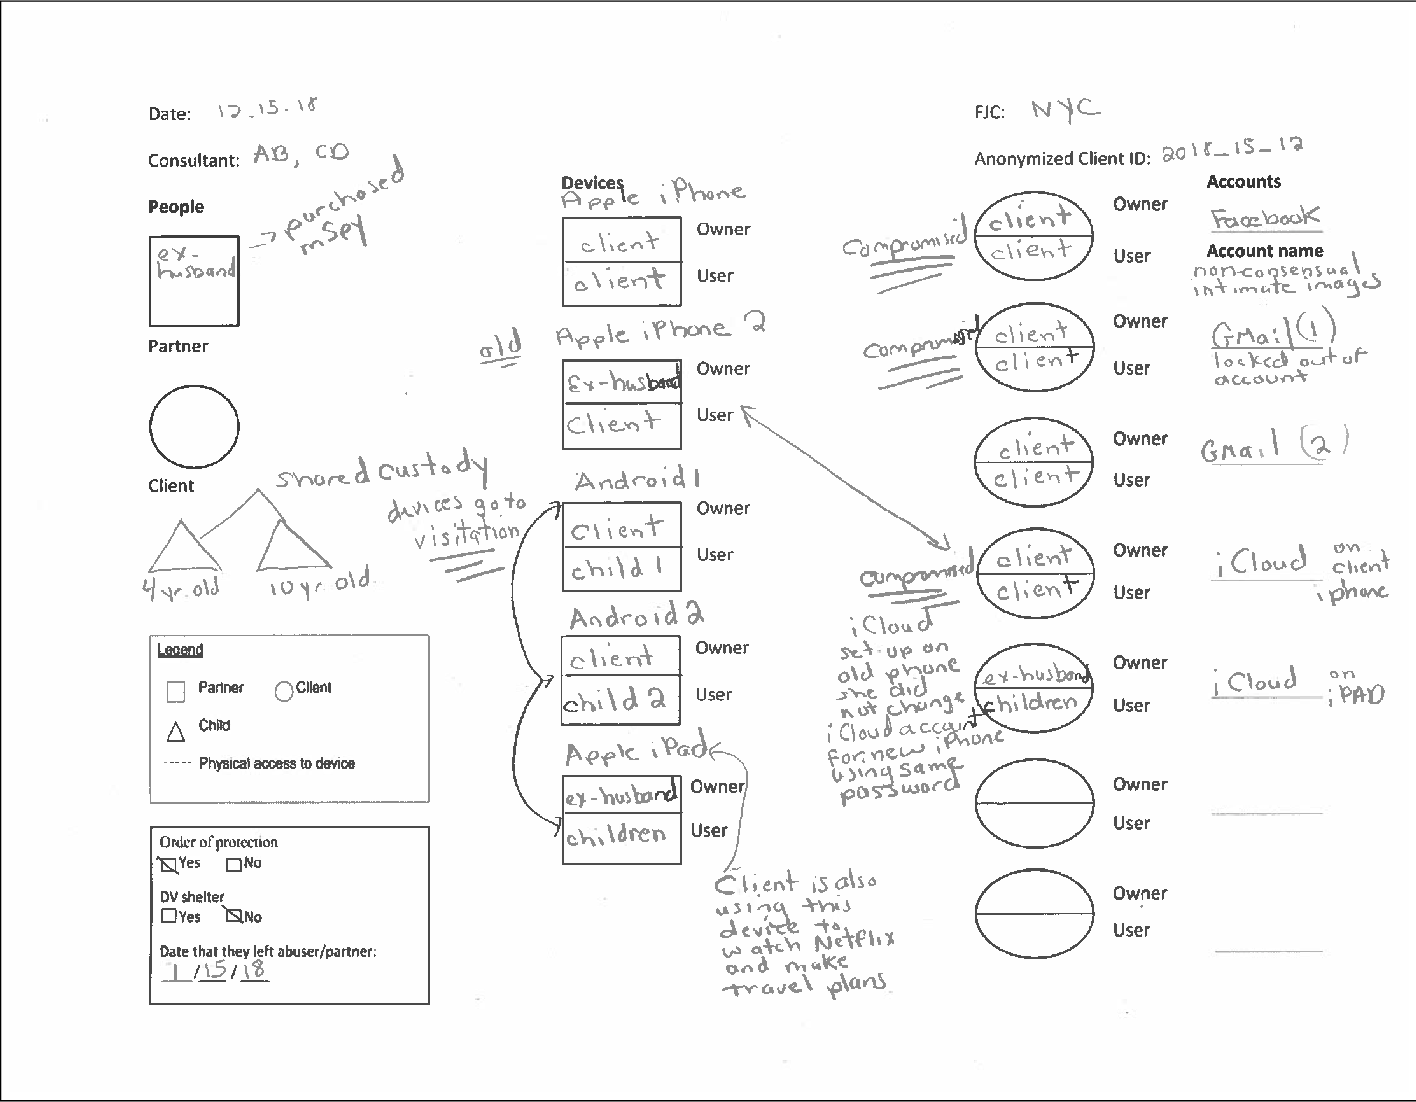 Date: 12.15.18
Consultant: AB, CD
People
ex-
husband
→ purchased
mSpy
Partner
Client
shared custody
4 yr. old
10 yr. old
devices go to
visitation
Legend
Partner
Client
Child
----- Physical access to device
Order of protection
Yes No
DV shelter
Yes No
Date that they left abuser/partner:
1/15/18
Devices
Apple iPhone
client Owner
client User
old
Apple iPhone 2
Ex-husband Owner
Client User
Android 1
Client Owner
child 1 User
Android 2
client Owner
child 2 User
Apple iPad
ex-husband Owner
children User
Client is also
using this
device to
watch Netflix
and make
travel plans
FJC: NYC
Anonymized Client ID: 2018_15_12
Accounts
Compromised
client Owner
client User
Facebook
Account name
non-consensual
intimate images
Compromised
client Owner
client User
GMail (1)
locked out of
account
client Owner
client User
GMail (2)
Compromised
client Owner
client User
iCloud on
client
iphone
iCloud
set-up on
old phone
she did
not change
iCloud account
for new iPhone
using same
password
ex-husband Owner
children User
iCloud on
iPAD
Owner
User
Owner
User